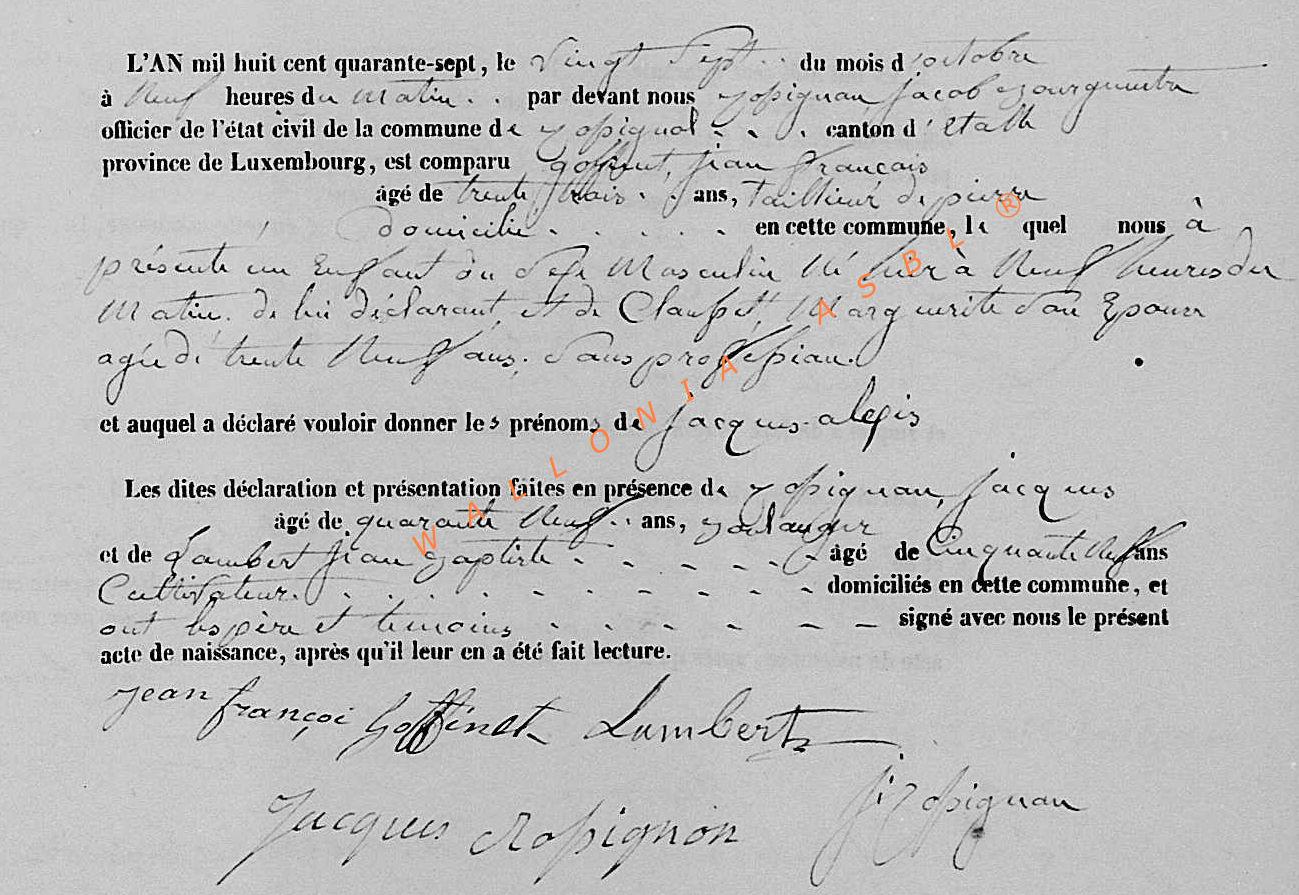 L'AN mil huit cent quarante-sept, le vingt sept du mois d'octobre
à neuf heures du matin par devant nous Rossignon jacob Bourguemtre
officier de l'état civil de la commune de Rossignol canton d'Etalle
province de Luxembourg, est comparu goffinet, jean françois
âgé de trente trois ans, taillieur de pierre
domicilie en cette commune, le quel nous à
présenté un Enfant du Sexe Masculin Né hier à Neuf heures du
Matin. de lui déclarant, et de Clausset, Marguerite Son Epouse
agée de trente Neuf ans, Sans profession.
et auquel a déclaré vouloir donner les prénoms de jacques alexis
Les dites déclaration et présentation faites en présence de Rossignon, jacques
âgé de quarante Neuf ans, Boulanger
et de Lambert jean Baptiste âgé de Cinquante Neuf ans
Cultivateur. domiciliés en cette commune, et
ont les père et temoins signé avec nous le présent
acte de naissance, après qu'il leur en a été fait lecture.
jean françoi Goffinet Lambert
Jacques Rossignon J. Rossignon
WALLONIA ASBL ®